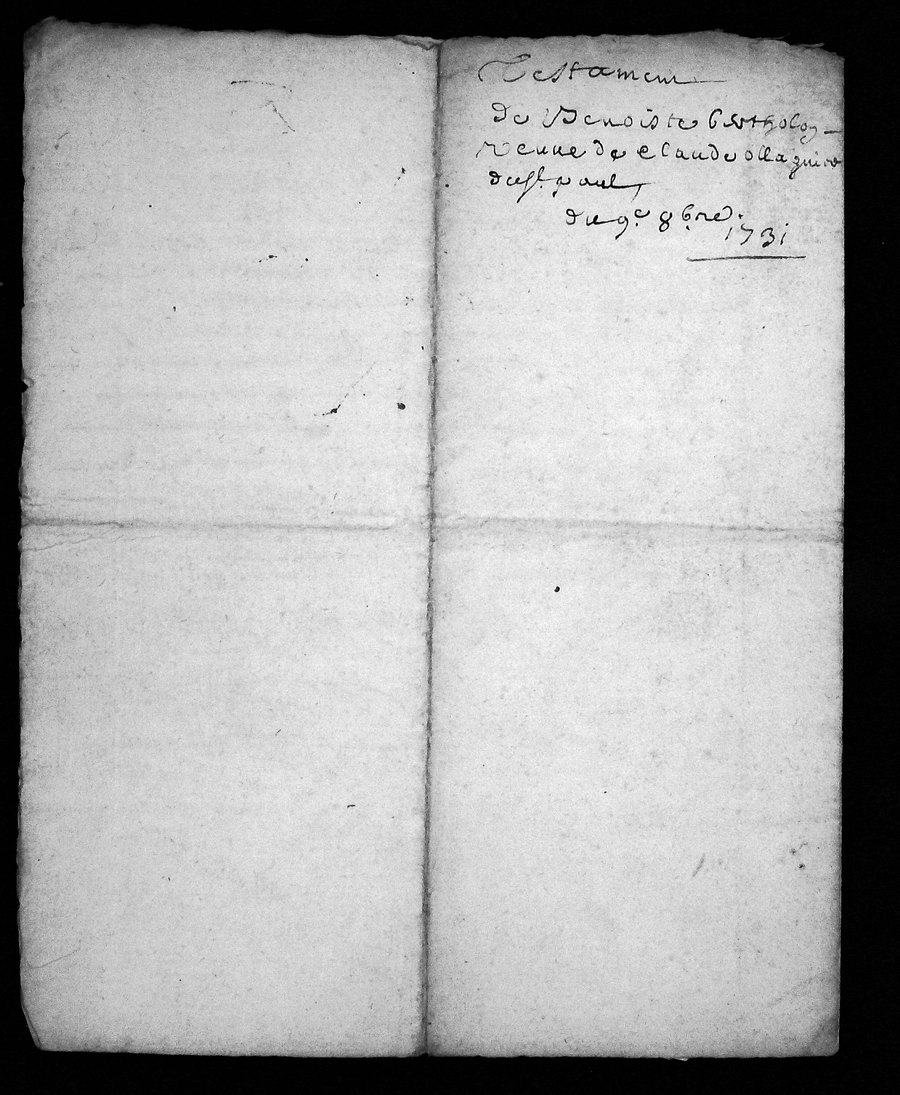 Testament
De Benoiste Bertholog
veuve de Claude ollagnier
de st. paul,
du 9e 8bre.
1731